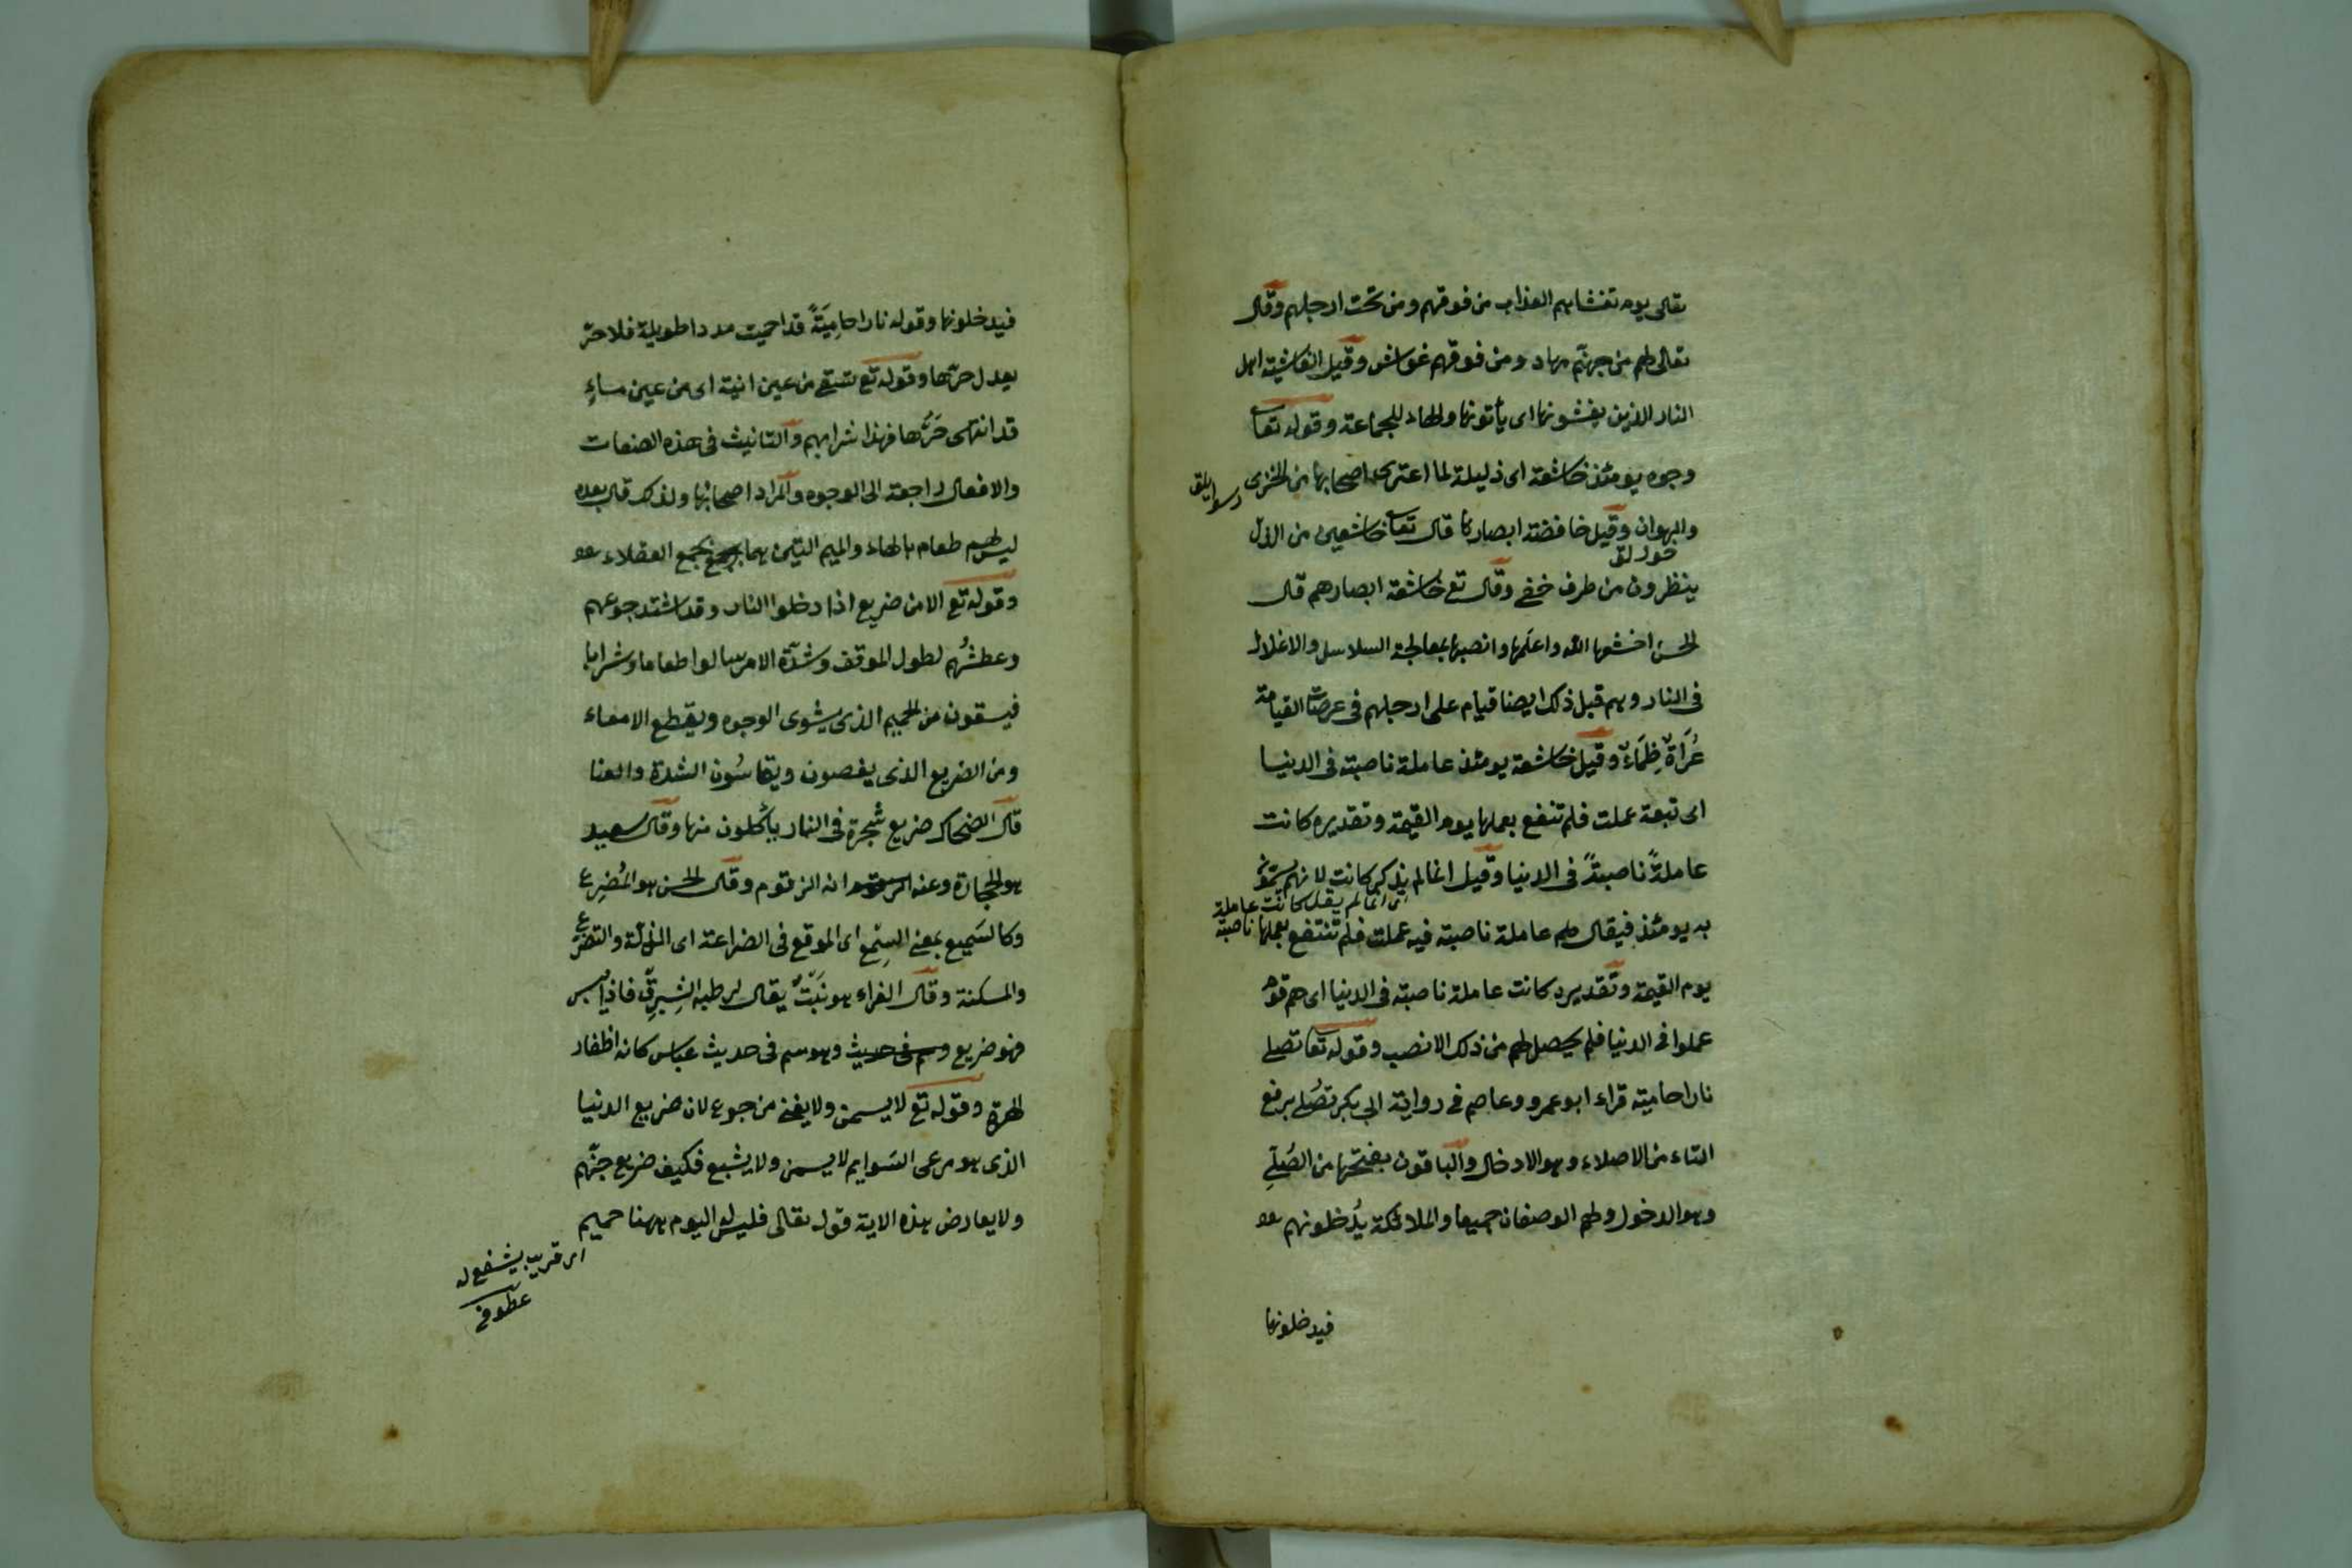 تعالى يوم تغشاهم العذاب من فوقهم ومن تحت ارجلهم وقال
تعالى لهم من جهنّم مهاد ومن فوقهم غواش وقيل الغاشية اهل
النار الذين يغشونها اى يأتونها والهاء للجماعة وقوله تعا
وجوه يومئذ خاشعة اى ذليلة لما اعترى اصحابها من الخزى
والهوان وقيل خافضة ابصارها قال تعا خاشعين من الذل
ينظرون من طرف خفى وقال تع خاشعة ابصارهم قال
الحسن اخشعها الله واعلمها وانصبها بمعالجة السلاسل والاغلال
فى النار وهم قبل ذلك ايضا قيام على ارجلهم فى عرصات القيامة
عُرَاةٌ ظِمَاءٌ وقيل خاشعة يومئذ عاملة ناصبة فى الدنيا
اى تبعة عملت فلم تنفع بعملها يوم القيمة وتقديره كانت
عاملةً ناصبةً فى الدنيا وقيل انما لم يذكر كانت لانهم
اى انما لم يقل كانت عاملة ناصبة
به يومئذ فيقال لهم عاملة ناصبة فيه عملت فلم تنتفع بعملها
يوم القيمة وتقديره كانت عاملة ناصبة فى الدنيا اى هم قوم
عملوا فى الدنيا فلم يحصل لهم من ذلك الا نصب وقوله تعا تصلى
نارا حامية قراء ابو عمرو وعاصم فى رواية ابى بكر تُصْلى برفع
التاء من الاصلاء وهو الادخال والباقون بفتحها من الصُلِىّ
وهو الدخول ولهم الوصفان جميعا والملائكة يُدخلونهم
فيدخلونها
فيدخلونها وقوله نارا حامِيَةً قد احميت مددا طويلة فلا حرّ
يعدل حرّها وقوله تع تسقى من عين انية اى من عين ماءٍ
قد انتهى حَرُّها فهذا شرابهم والتانيث فى هذه الصفات
والافعال راجعة الى الوجوه والمراد اصحابها ولذلك قال بعده
ليس لهم طعام بالهاء والميم اللتين هما يجمع العقلاء
وقوله تع الا من ضريع اذا دخلوا النار وقد اشتد جوعهم
وعطشُهم لطول الموقف وشدّة الامر سالوا طعاما وشرابا
فيسقون من الحميم الذى يشوى الوجوه ويقطع الامعاء
ومن الضريع الذى يغصون ويقاسُون الشدة والعنا
قال الضحاك ضريع شجرة فى النار ياكلون منها وقال سعيد
هو الحجارة وعنه انه الزقوم وقال الحسن هو المُضرِع
وكالسَميع بمعنى السِمْع اى الموقع فى الضراعة اى الذلّة والتضرّع
والمسكنة وقال الفراء هو نَبتٌ يقال لرطبه الشِبرِق فاذا يبس
فهو ضريع وسم فى حديث وهو سم فى حديث عباس كانه اظفار
الهرة وقوله تع لا يسمن ولا يغنى من جوع لان ضريع الدنيا
الذى هو مرعى السَوايم لا يسمن ولا يشبع فكيف ضريع جهنّم
ولا يعارض هذه الاية قوله تعالى فليس له اليوم ههنا حميم
اى قريب يشفع له
عطوفى